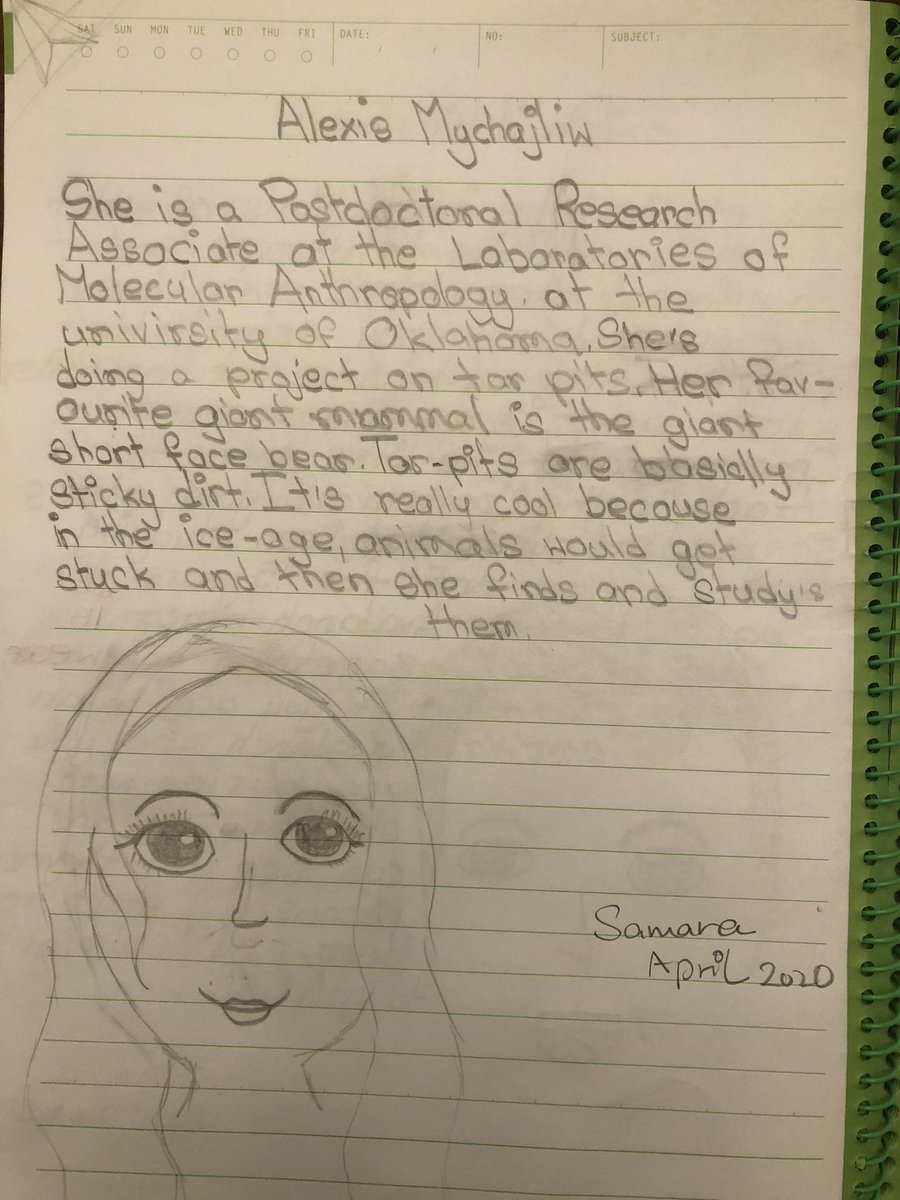 SAT SUN MON TUE WED THU FRI DATE: / / NO: SUBJECT:
Alexis Mychajliw
She is a Postdoctoral Research
Associate at the Laboratories of
Molecular Anthropology. at the
univirsity of Oklahoma. She's
doing a project on tar pits. Her fav-
ourite giant mammal is the giant
short face bear. Tar-pits are basially
sticky dirt. It's really cool because
in the ice-age, animals would get
stuck and then she finds and study's
them.
Samara
April 2020